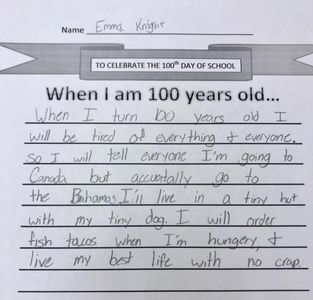 Name Emma Knight
TO CELEBRATE THE 100th DAY OF SCHOOL
When I am 100 years old...
When I turn 100 years old I
will be tired of everything & everyone.
so I will tell everyone I'm going to
Canada but accuatally go to
the Bahamas. I'll live in a tiny hut
with my tiny dog. I will order
fish tacos when I'm hungery, &
live my best life with no crap.